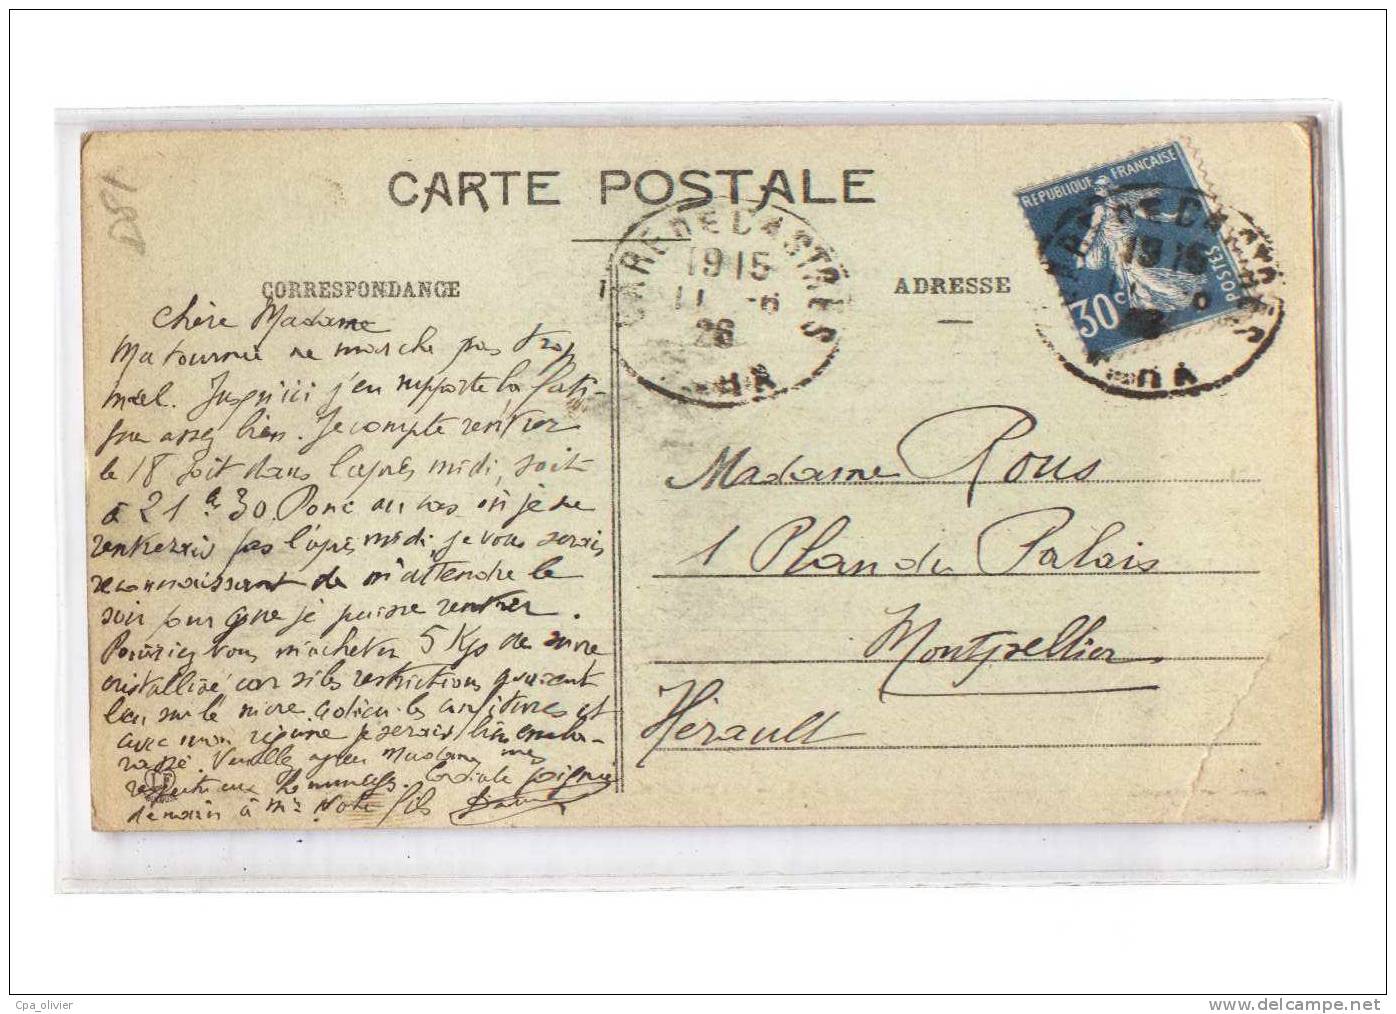 CARTE POSTALE
CORRESPONDANCE
ADRESSE
GARE DE CASTRES
1915
11 -6
26
REPUBLIQUE FRANÇAISE
POSTES
30c
GARE DE CASTRES
1915
Chère Madame
Ma tournée ne marche pas trop
mal. Jusqu'ici j'en supporte la fati-
gue assez bien. Je compte rentrer
le 18 soit dans l'après midi, soit
à 21 h 30. Donc au cas où je ne
rentrerais pas l'après midi je vous serais
reconnaissant de m'attendre le
soir pour que je puisse rentrer.
Pourriez vous m'acheter 5 Kgs de sucre
cristallisé car si les restrictions avaient
lieu sur le sucre adieu les confitures et
avec mon régime je serais bien emba-
rassé. Veuillez agréer Madame mes
respectueux hommages. Cordiale poignée
de main à Mr Votre fils
Madame Rous
1 Plan du Palais
Montpellier
Hérault
Cpa_olivier
www.delcampe.net